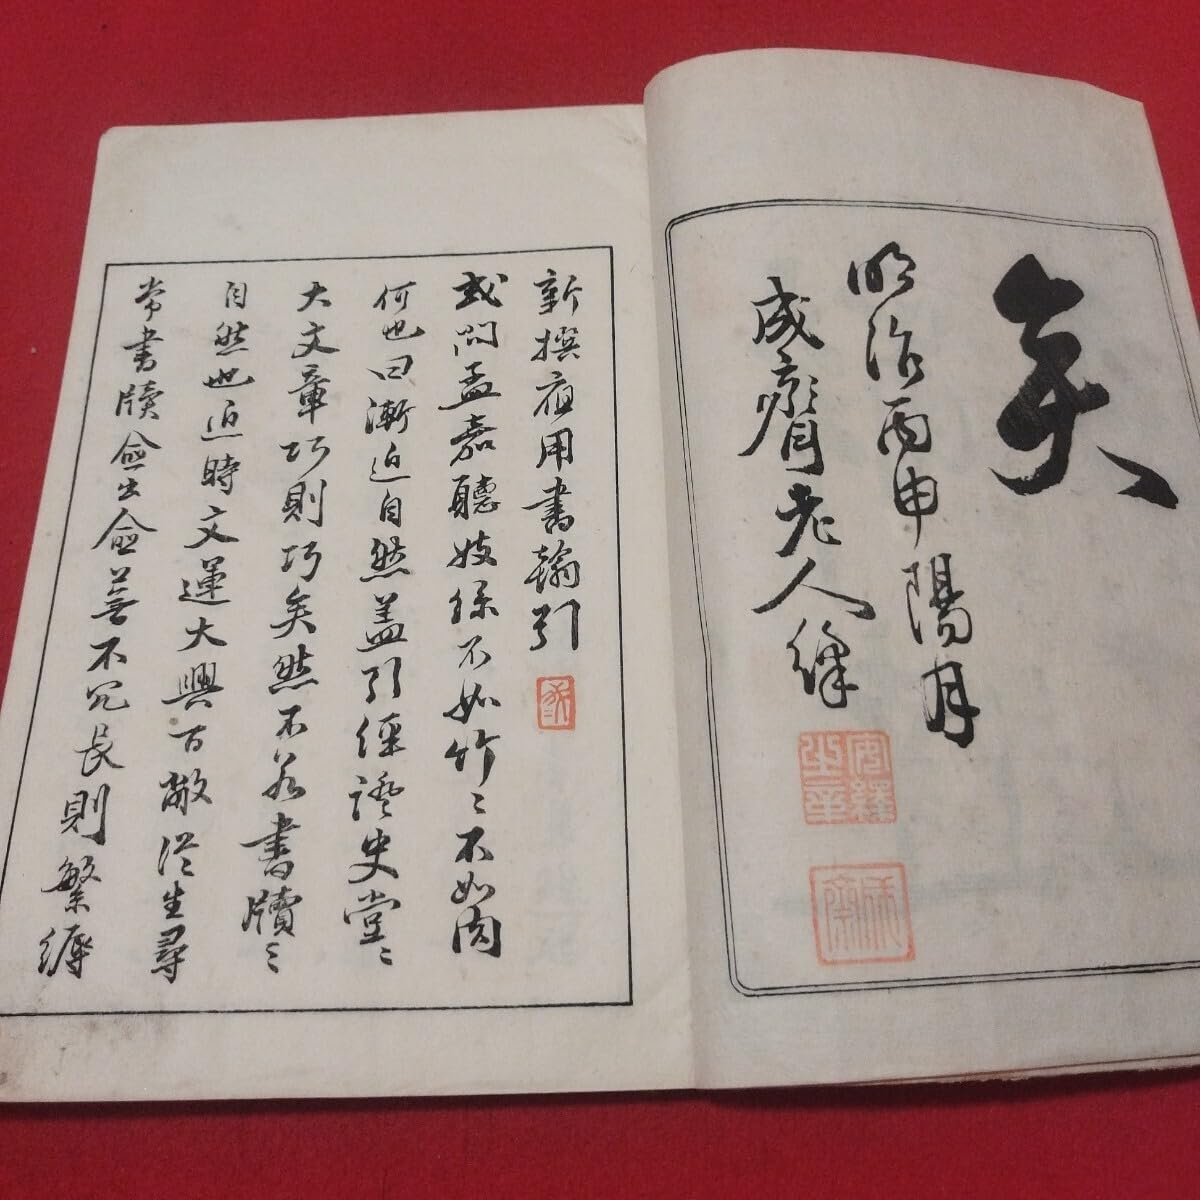 矣
明治丙申陽月
成齋老人繹
安繹之章
成齋
新撰應用書翰引
或問孟嘉聽妓絲不如竹〻不如肉
何也曰漸近自然蓋引經證史堂〻
大文章巧則巧矣然不若書牘〻
自然也近時文運大興百敝從生尋
常書牘愈出愈蕪不冗長則繁縟